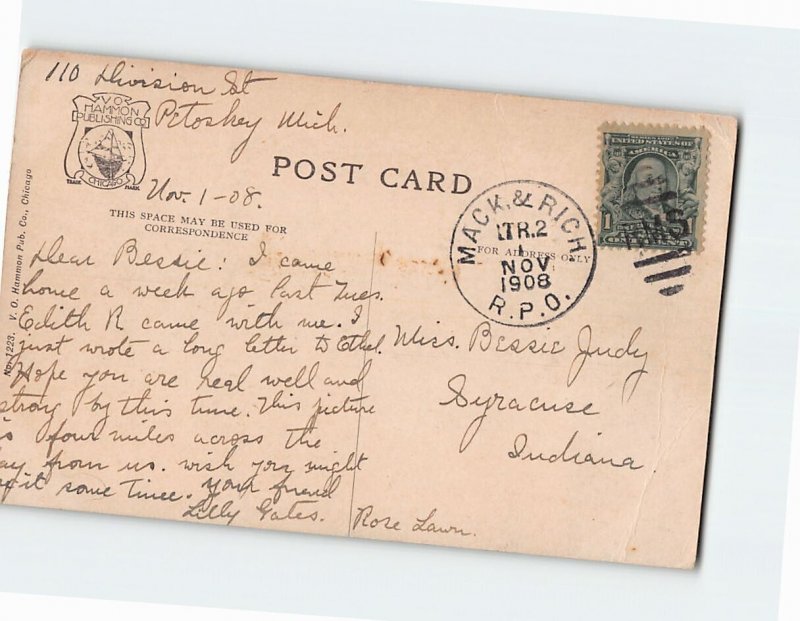 110 Division St
Petoskey Mich.
V.O.
HAMMON
PUBLISHING CO
CHICAGO
TRADE MARK
POST CARD
Nov. 1-08.
THIS SPACE MAY BE USED FOR
CORRESPONDENCE
FOR ADDRESS ONLY
No. 1223. V. O. Hammon Pub. Co., Chicago
Dear Bessie: I came
home a week ago last Tues.
Edith R came with me. I
just wrote a long letter to Ethel.
Hope you are real well and
strong by this time. This picture
is four miles across the
bay from us. wish you might
see it some time. your friend
Lilly Gates.
Miss. Bessie Judy
Syracuse
Indiana.
Rose Lawn.
MACK. & RICH.
TR.2
1
NOV
1908
R.P.O.
SERIES 1902
UNITED STATES OF
AMERICA
1 1
ONE CENT
RMS